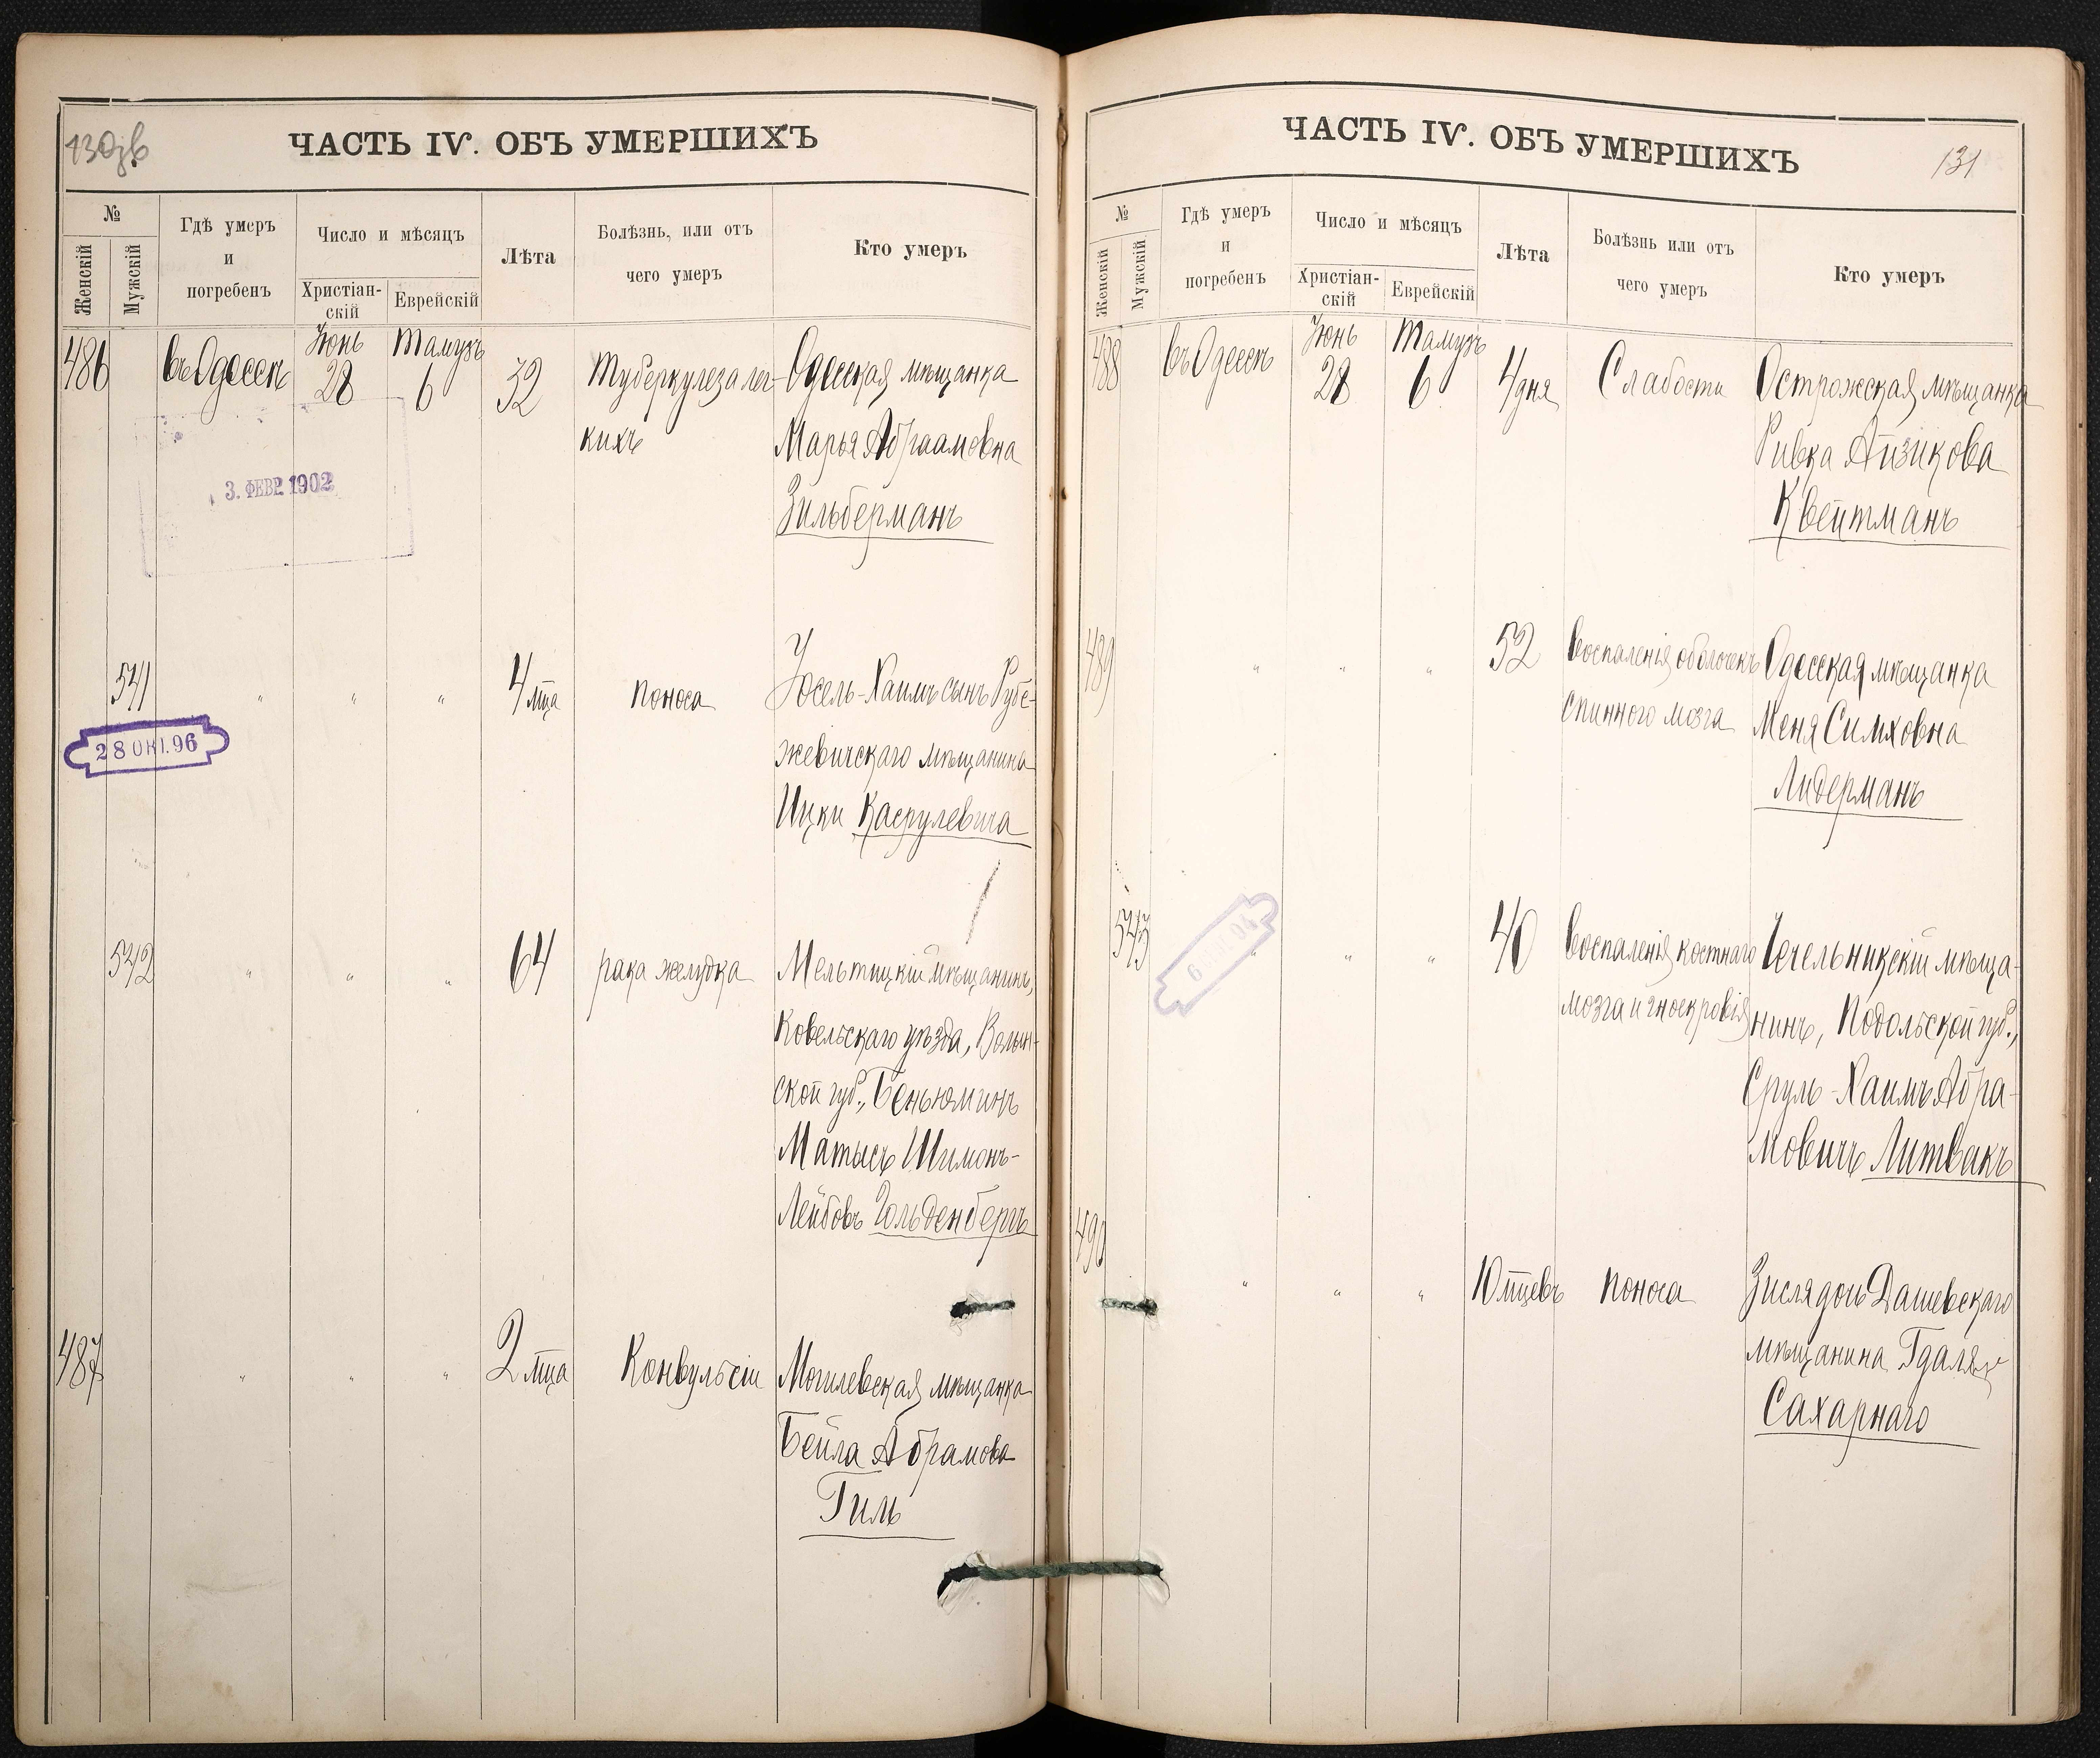 130 об
ЧАСТЬ IV. ОБЪ УМЕРШИХЪ
№
Женскій
Мужскій
Гдѣ умеръ
и
погребенъ
Число и мѣсяцъ
Христіан-
скій
Еврейскій
Лѣта
Болѣзнь, или отъ
чего умеръ
Кто умеръ
486 въ Одессѣ Іюнь 28 Тамузъ 6 32 Туберкулеза лег- Одесская мѣщанка
кихъ Марья Абраамовна
Зильберманъ
3. ФЕВР. 1902
541 " " " 4 мца поноса Іосель-Хаимъ сынъ Рубе-
жевичскаго мѣщанина
Ицки Касрулевича
28 ОКТ. 96
542 " " " 64 рака желудка Мельницкій мѣщанинъ,
Ковельскаго уѣзда, Волын-
ской губ., Беньюминъ
Матысъ Шимонъ-
Лейбовъ Гольденбергъ
487 " " " 2 мца Конвульсіи Могилевская мѣщанка
Бейла Абрамова
Гиль
ЧАСТЬ IV. ОБЪ УМЕРШИХЪ
131
№
Женскій
Мужскій
Гдѣ умеръ
и
погребенъ
Число и мѣсяцъ
Христіан-
скій
Еврейскій
Лѣта
Болѣзнь или отъ
чего умеръ
Кто умеръ
488 въ Одессѣ Іюнь 28 Тамузъ 6 4 дня Слабости Острожская мѣщанка
Ривка Айзикова
Квейтманъ
489 " " " 52 воспаленія оболочекъ Одесская мѣщанка
спинного мозга Меня Симховна
Лидерманъ
543 " " " 40 воспаленія костнаго Чечельникскій мѣща-
мозга и гноекровія нинъ, Подольской губ.,
Сруль-Хаимъ Абра-
мовичъ Литвакъ
490 " " " 10 мцевъ поноса Зисля дочь Дашевскаго
мѣщанина Гдаля
Сахарнаго